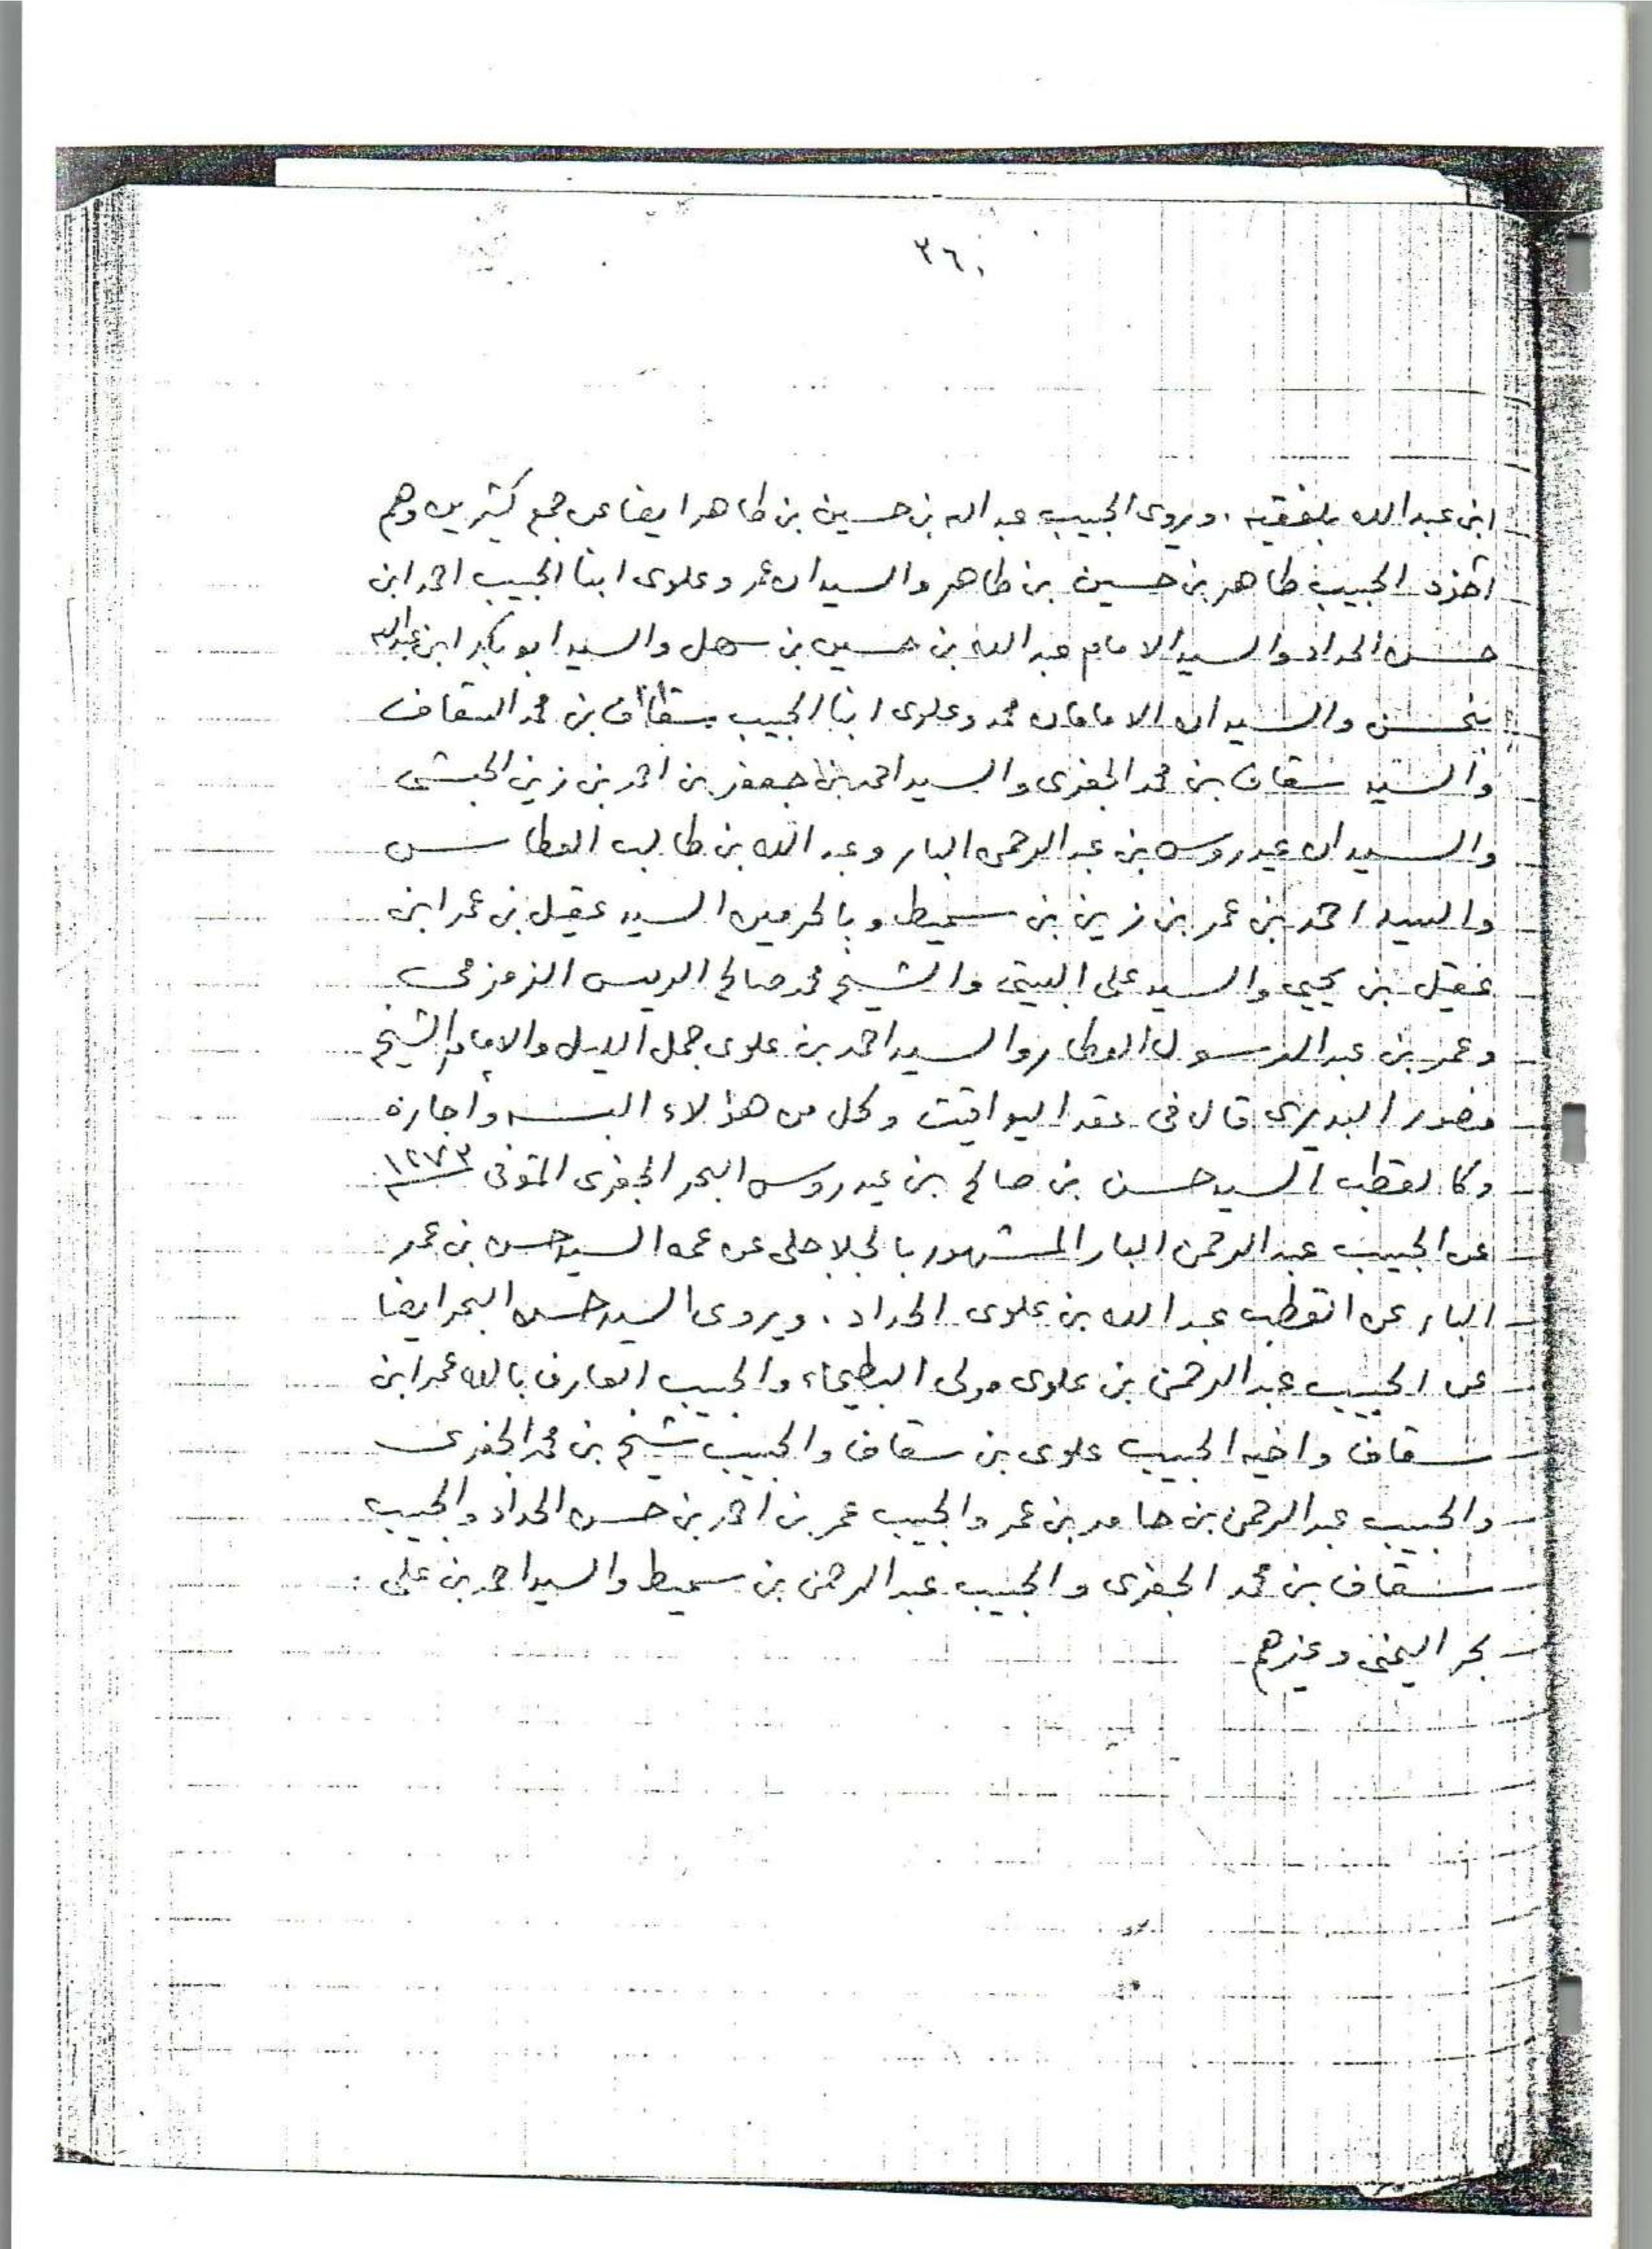 ٣٦٠
ابن عبدالله بلفقيه . ويروى الحبيب عبدالله بن حسين بن طاهر ايضا عن جمع كثيرين وهم
الحبيب طاهر بن حسين بن طاهر والسيدان عمر وعلوى ابنا الحبيب احمد ابن
حسن الحداد والسيد الامام عبدالله بن حسين بن سهل والسيد ابوبكر ابن عبدالله
والسيدان الامامان محمد وعلوى ابنا الحبيب سقاف بن محمد السقاف
والسيد سقاف بن محمد الجفرى والسيد احمد بن جعفر بن احمد بن زين الحبشى
والسيدان عيدروس بن عبدالرحمن البار وعبد الله بن طالب العطاس
والسيد احمد بن عمر بن زين بن سميط وبالحرمين السيد عقيل بن عمر ابن
عقيل بن يحيى والسيد على البيتى والشيخ محمد صالح الريس الزمزمى
وعمر بن عبد الرسول العطار والسيد احمد بن علوى جمل الليل والامام الشيخ
منصور البديرى قال فى عقد اليواقيت وكل من هؤلاء البسه وأجازه
وكا لقطب السيد حسن بن صالح بن عيدروس البحر الجفرى المتوفى ١٢٧٣
عن الحبيب عبد الرحمن البار المشهور بالجلاجلى عن عمه السيد حسن بن عمر
البار عن القطب عبد الله بن علوى الحداد . ويروى السيد حسن البحر ايضا
عن الحبيب عبدالرحمن بن علوى مولى البطيحاء والحبيب العارف بالله عمر ابن
سقاف واخيه الحبيب علوى بن سقاف والحبيب شيخ بن محمد الجفرى
والحبيب عبدالرحمن بن حامد بن عمر والحبيب عمر بن احمد بن حسن الحداد والحبيب
سقاف بن محمد الجفرى والحبيب عبد الرحمن بن سميط والسيد احمد بن على
بحر اليمنى وغيرهم